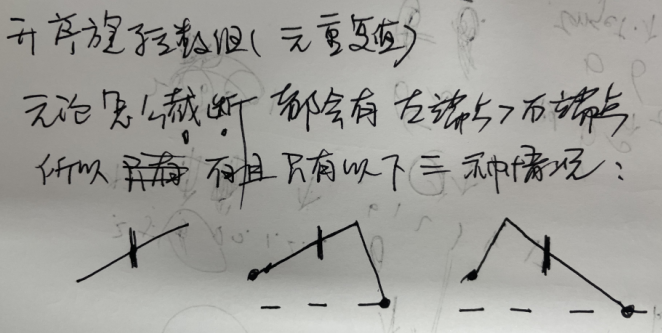 升序旋转数组(无重复值)
无论怎么截断 都会有 左端点>右端点
所以 有且只有以下三种情况: